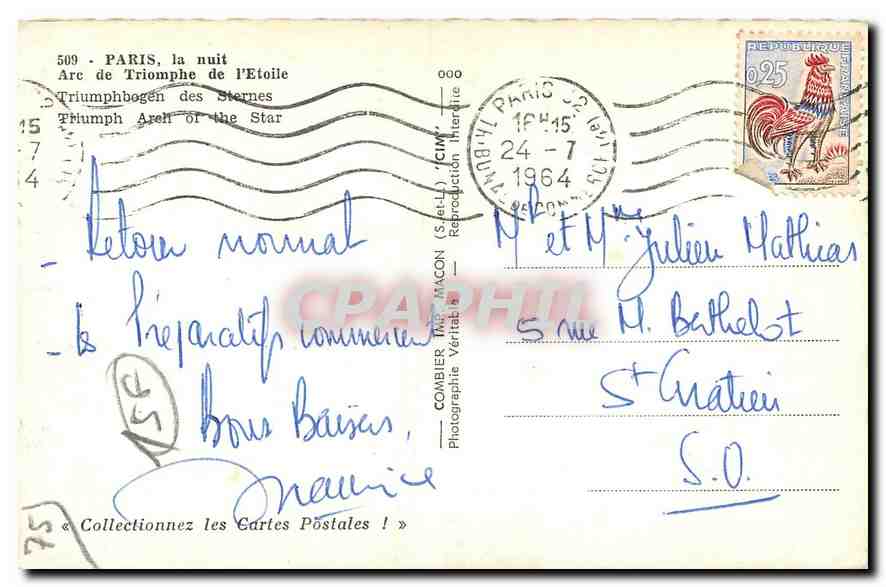 509 - PARIS, la nuit
Arc de Triomphe de l'Etoile
Triumphbogen des Sternes
Triumph Arch of the Star
- Retour normal
- les Préparatifs commencent
Bons Baisers,
Maurice
15F
75
« Collectionnez les Cartes Postales ! »
COMBIER IMP. MACON (S.-et-L.) "CIM"
Photographie Véritable — Reproduction Interdite
PARIS 32
16H15
24 - 7
1964
REPUBLIQUE
FRANÇAISE
0,25
Mr et Mme Julien Mathias
5 rue M. Berthelot
St Gratien
S.O.
CPAPHIL